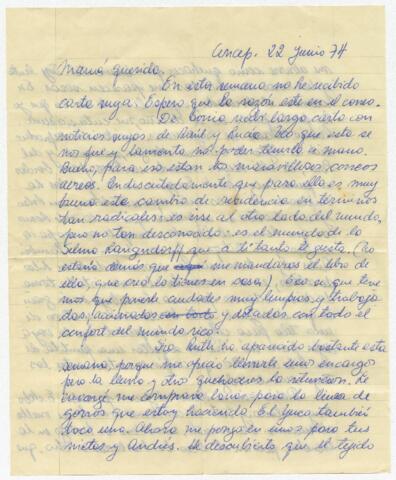 Concep. 22 Junio 74
Mamá querida. En esta semana no he recibido
carta suya. Espero que la razón esté en el correo.
De Sonia recibí larga carta con
noticias suyas, de Raúl y Lucía. Creo que esta se
nos fue y lamento no poder tenerla a mano.
Bueno, para eso están los maravillosos correos
aéreos. Indiscutidamente que para ella es muy
bueno este cambio de residencia en términos
tan radicales: es irse al otro lado del mundo,
pero no tan desconocido: es el mundo de la
Selma Lagerlöf que a tí tanto te gusta. (No
estaría demás que me mandaras el libro de
ella, que creo lo tienes en casa). Eso sí, que tene
mos que prever ciudades muy limpias y trabaja
das, y dotadas con todo el
confort del mundo rico.
Dra. Ruth ha aparecido bastante esta
semana, porque me ofreció llevarte unos encargos
pero la lluvia y otros quehaceres la
encargué me comprara lanas para la línea de
gorros que estoy haciendo. El Yuca también
tocó uno. Ahora me pongo en unos para tus
nietos y Andrés. He descubierto que el tejido